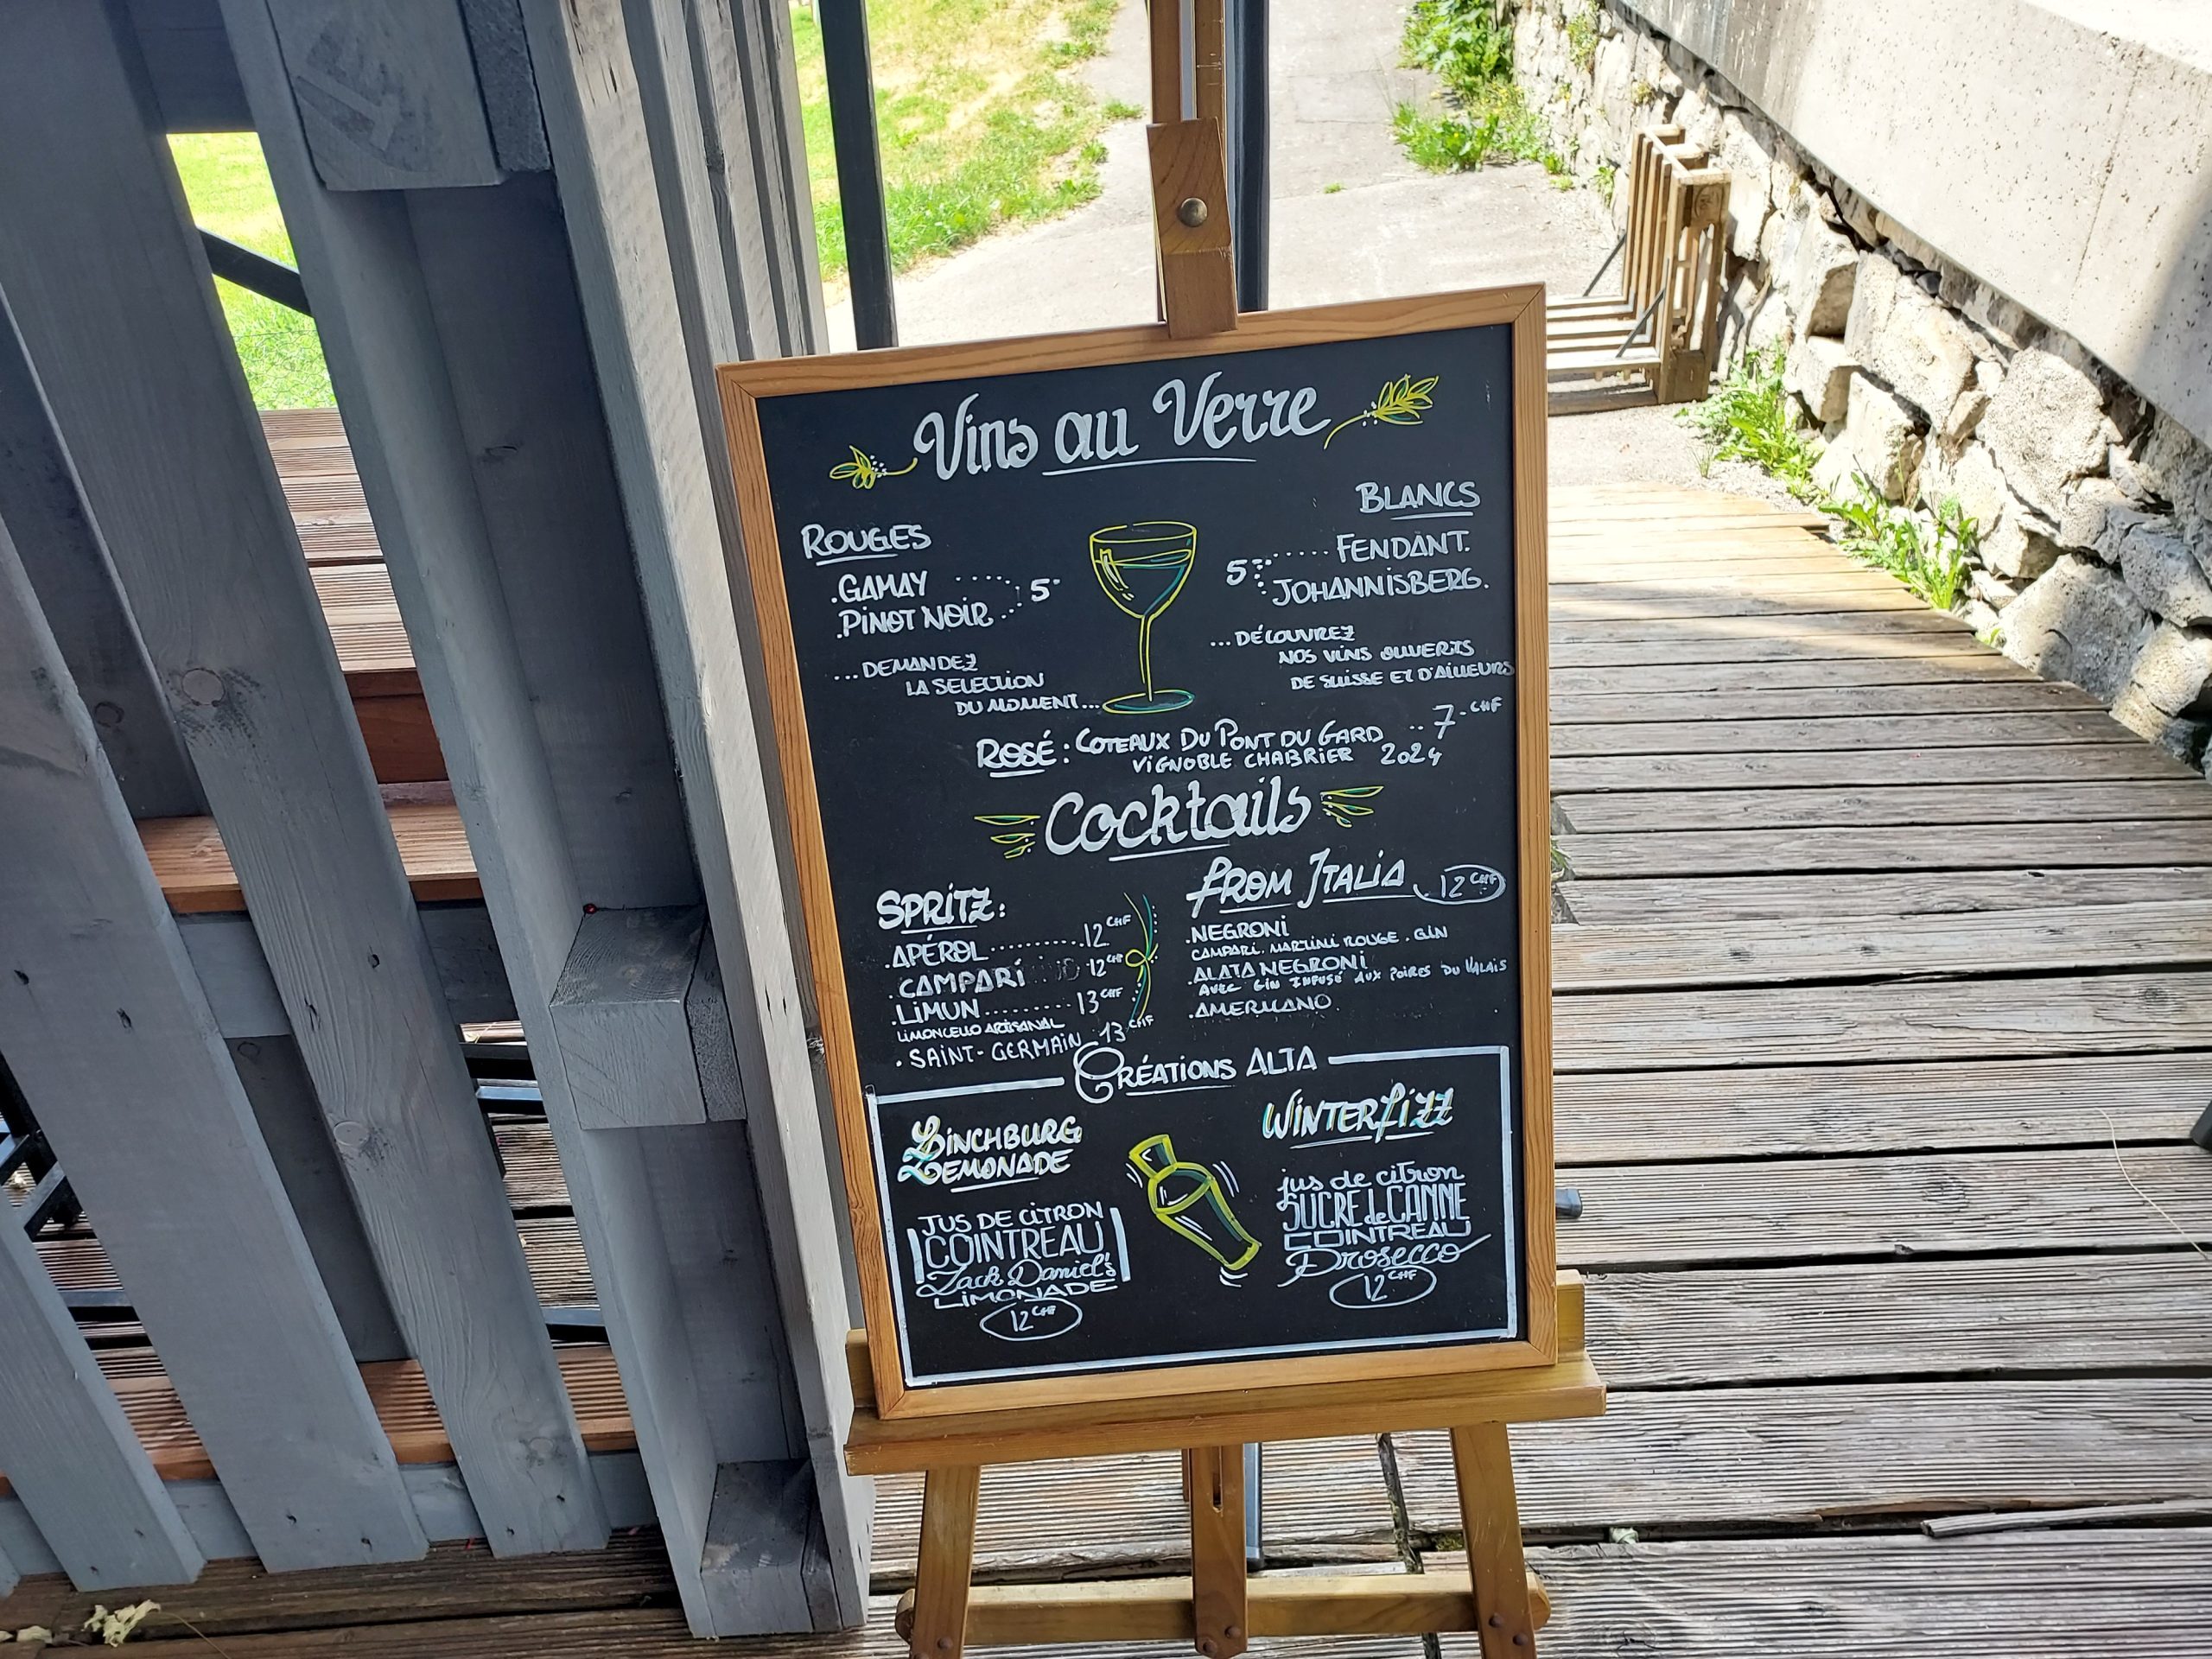 Vins au Verre
ROUGES
.GAMAY ........ 5.-
.PINOT NOIR
...DEMANDEZ
LA SELECTION
DU MOMENT...
BLANCS
5.- ...... FENDANT.
JOHANNISBERG.
...DÉCOUVREZ
NOS VINS OUVERTS
DE SUISSE ET D'AILLEURS
ROSÉ : COTEAUX DU PONT DU GARD .. 7.- CHF
VIGNOBLE CHABRIER 2024
Cocktails
SPRITZ:
.APÉROL ........... 12 CHF
.CAMPARI 12 CHF
.LIMUN ......... 13 CHF
LIMONCELLO ARTISANAL
. SAINT-GERMAIN 13 CHF
FROM ITALIA 12 CHF
.NEGRONI
CAMPARI. MARTINI ROUGE. GIN
.ALATA NEGRONI
AVEC GIN INFUSÉ AUX POIRES DU VALAIS
.AMERICANO
CRÉATIONS ALTA
LINCHBURG
LEMONADE
JUS DE CITRON
COINTREAU
Jack Daniel's
LIMONADE
12 CHF
WINTERFIZZ
jus de citron
SUCRE de CANNE
COINTREAU
Prosecco
12 CHF